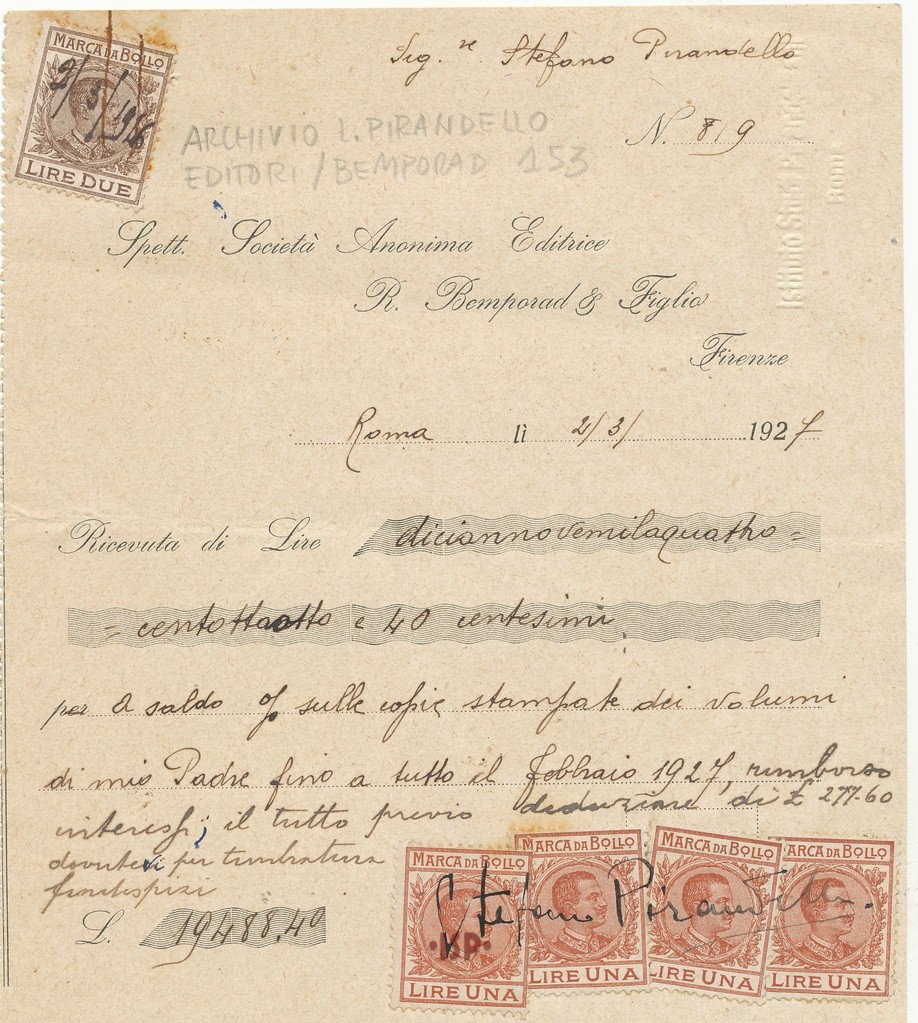 MARCA DA BOLLO
2/3/1926
LIRE DUE
Sig.re Stefano Pirandello
ARCHIVIO L. PIRANDELLO
EDITORI / BEMPORAD 153
N. 819
Roma
Spett. Società Anonima Editrice
R. Bemporad & Figlio
Firenze
Roma lì 2/3/ 1927
Ricevuta di Lire diciannovemilaquattro=
=centottaotto e 40 centesimi
per a saldo % sulle copie stampate dei volumi
di mio Padre fino a tutto il febbraio 1927, rimborso
interessi; il tutto previo deduzione di £ 277.60
dovutevi per timbratura
frontespizi
L. 19488,40
MARCA DA BOLLO MARCA DA BOLLO MARCA DA BOLLO MARCA DA BOLLO
Stefano Pirandello.
LIRE UNA LIRE UNA LIRE UNA LIRE UNA